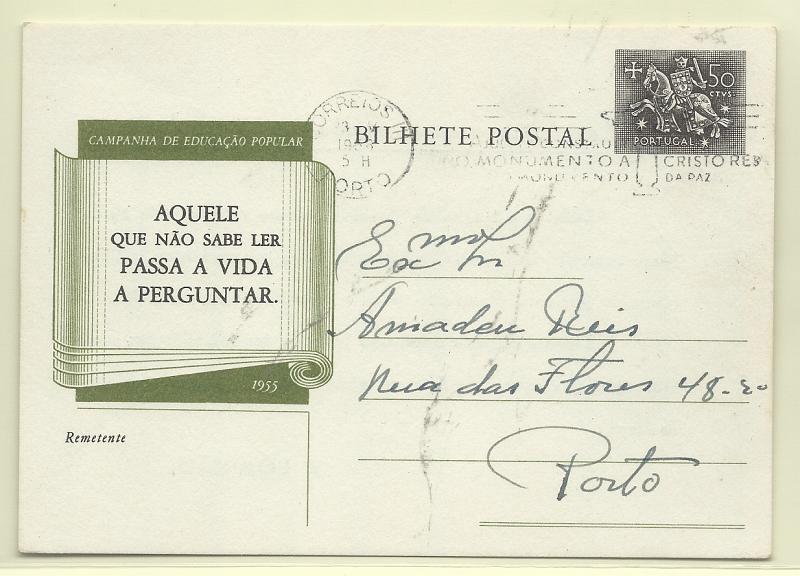 CAMPANHA DE EDUCAÇÃO POPULAR
AQUELE
QUE NÃO SABE LER
PASSA A VIDA
A PERGUNTAR.
1955
Remetente
BILHETE POSTAL
50
CTVS.
PORTUGAL
CORREIOS
5 H
PORTO
MONUMENTO A CRISTO REI
DA PAZ
Exmo Sr
Amadeu Reis
Rua das Flores 48-2º
Porto